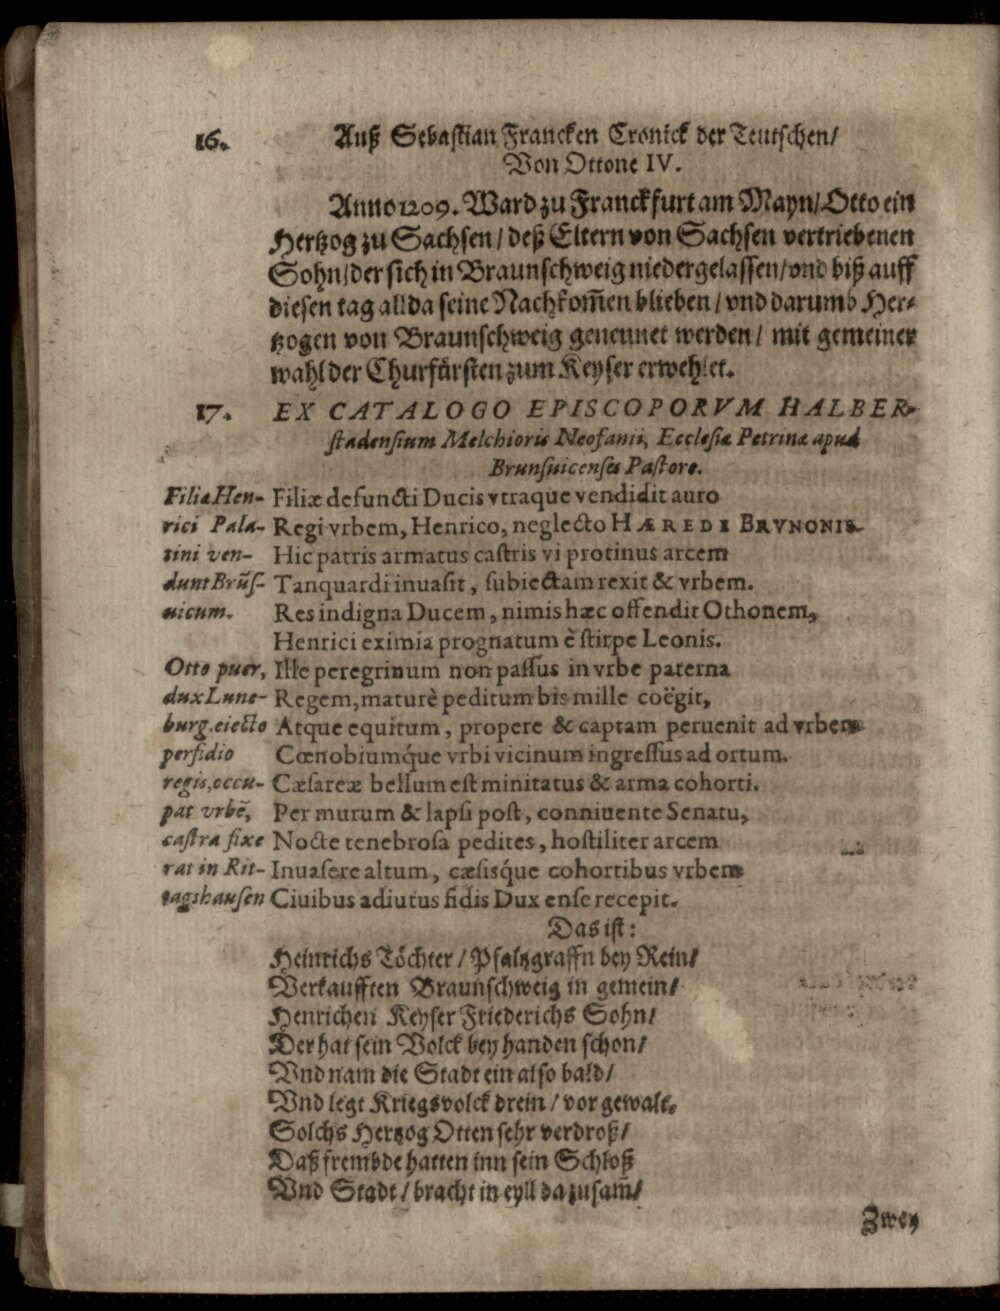 16. Auß Sebastian Francken Cronick der Teutschen/
Von Ottone IV.
Anno 1209. Ward zu Franckfurt am Mayn/ Otto ein
Hertzog zu Sachsen / deß Eltern von Sachsen vertriebenen
Sohn/ der sich in Braunschweig niedergelassen/ vnd biß auff
diesen tag allda seine Nachkom̃en blieben / vnd darumb Her-
tzogen von Braunschweig genennet werden / mit gemeiner
wahl der Churfürsten zum Keyser erwehlet.
17. EX CATALOGO EPISCOPORVM HALBER-
stadensium Melchioris Neofanii, Ecclesiæ Petrinæ apud
Brunsuicenses Pastore.
Filiæ Hen- Filiæ defuncti Ducis vtraque vendidit auro
rici Pala- Regi vrbem, Henrico, neglecto HÆREDE BRVNONIS.
tini ven- Hic patris armatus castris vi protinus arcem
dunt Brũs- Tanquardi inuasit, subiectam rexit & vrbem.
uicum. Res indigna Ducem, nimis hæc offendit Othonem,
Henrici eximia prognatum è stirpe Leonis.
Otto puer, Ille peregrinum non passus in vrbe paterna
dux Lune- Regem, maturè peditum bis mille coëgit,
burg. eiecto Atque equitum, propere & captam peruenit ad vrbem
perfidio Cœnobiumq́ue vrbi vicinum ingressus ad ortum.
regis, occu- Cæsareæ bellum est minitatus & arma cohorti.
pat vrbẽ, Per murum & lapsi post, conniuente Senatu,
castra fixe Nocte tenebrosa pedites, hostiliter arcem
rat in Rit- Inuasere altum, cæsisq́ue cohortibus vrbem
tagshausen Ciuibus adiutus fidis Dux ense recepit.
Das ist:
Heinrichs Töchter / Pfaltzgraffn bey Rein/
Verkaufften Braunschweig in gemein/
Henrichen Keyser Friederichs Sohn/
Der hat sein Volck bey handen schon/
Vnd nam die Stadt ein also bald/
Vnd legt Kriegsvolck drein / vor gewalt.
Solchs Hertzog Otten sehr verdroß/
Daß frembde hatten inn sein Schloß
Vnd Stadt / bracht in eyll da zusam̃/
Zwey